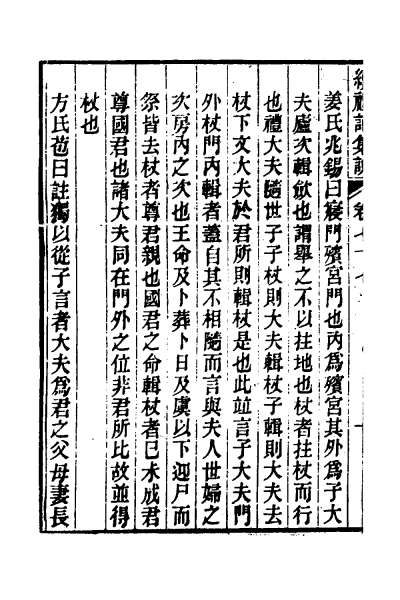 續禮記集說 卷七十七
姜氏兆錫曰寢門殯宮門也內爲殯宮其外爲子大
夫廬次輯斂也謂舉之不以拄地也杖者拄杖而行
也禮大夫隨世子子杖則大夫輯杖子輯則大夫去
杖下文大夫於君所則輯杖是也此竝言子大夫門
外杖門內輯者蓋自其不相隨而言與夫人世婦之
次房內之次也王命及卜葬卜日及虞以下迎尸而
祭皆去杖者尊君親也國君之命輯杖者已未成君
尊國君也諸大夫同在門外之位非君所比故並得
杖也
方氏苞曰註獨以從子言者大夫爲君之父母妻長